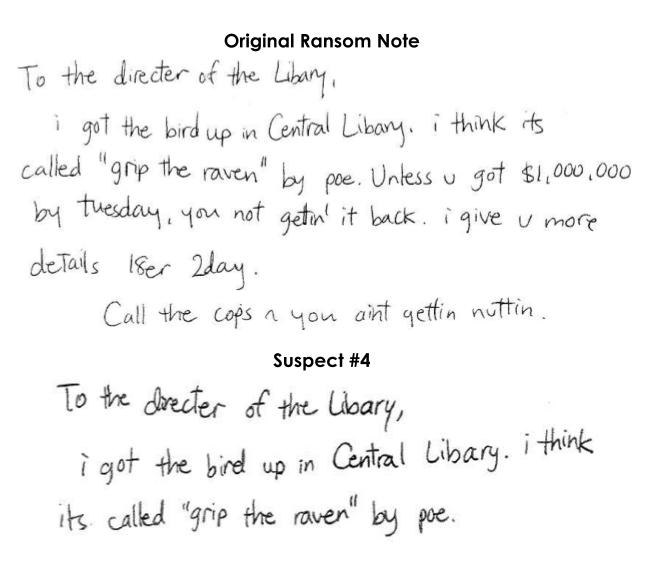 Original Ransom Note
To the directer of the Libary,
i got the bird up in Central Libary. i think its
called "grip the raven" by poe. Unless u got $1,000,000
by tuesday, you not getin' it back. i give u more
details l8er 2day.
Call the cops n you aint gettin nuttin.
Suspect #4
To the directer of the Libary,
i got the bird up in Central Libary. i think
its called "grip the raven" by poe.